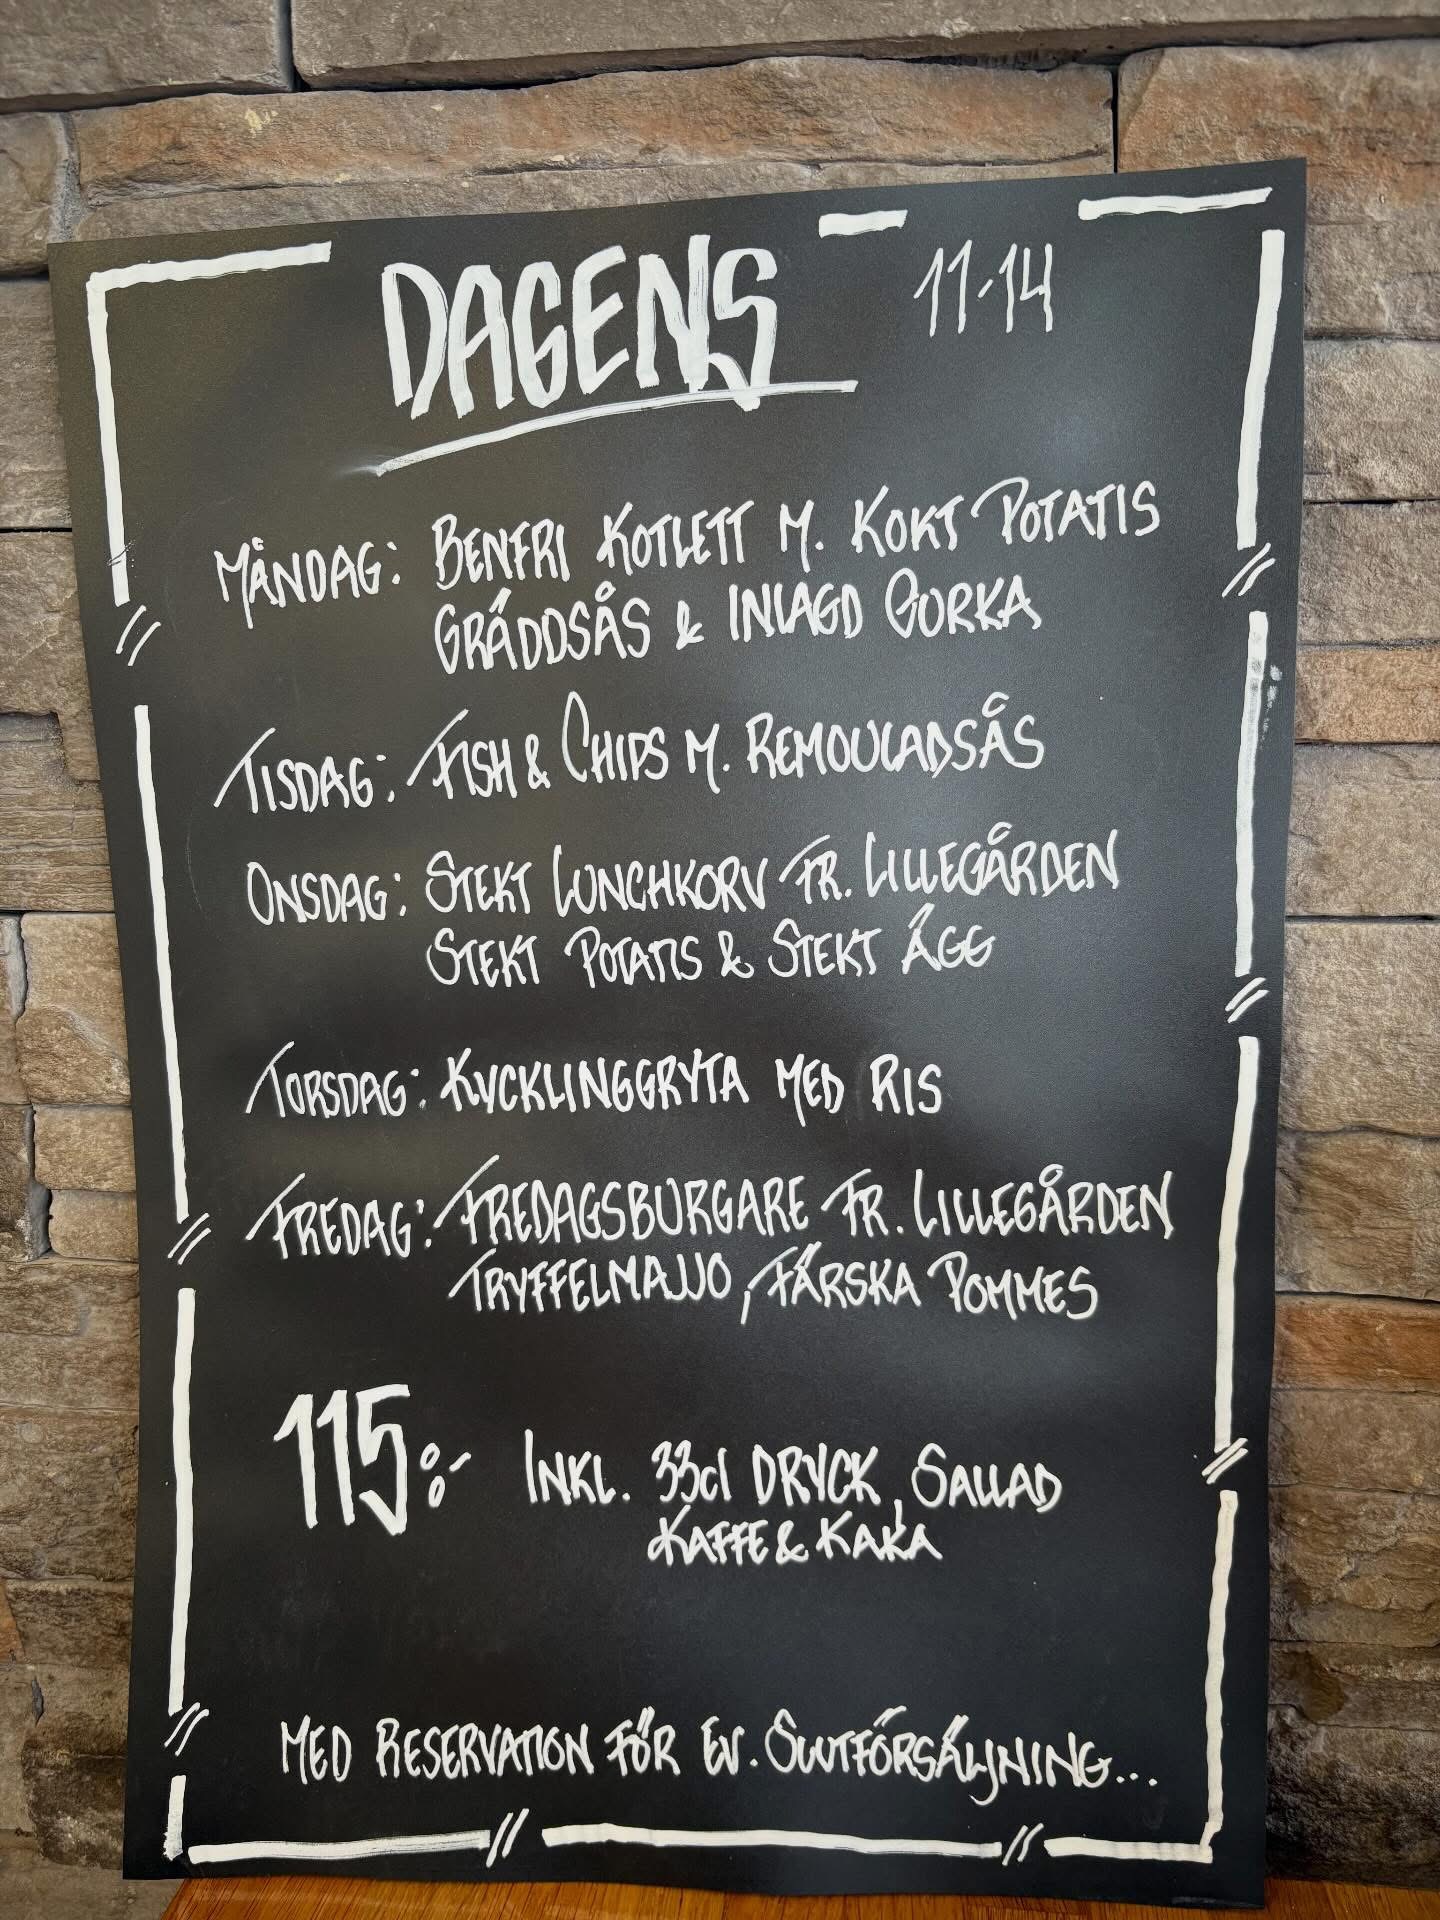 DAGENS 11-14
MÅNDAG: BENFRI KOTLETT M. KOKT POTATIS
GRÄDDSÅS & INLAGD GURKA
TISDAG: FISH & CHIPS M. REMOULADSÅS
ONSDAG: STEKT LUNCHKORV FR. LILLEGÅRDEN
STEKT POTATIS & STEKT ÄGG
TORSDAG: KYCKLINGGRYTA MED RIS
FREDAG: FREDAGSBURGARE FR. LILLEGÅRDEN
TRYFFELMAJJO, FÄRSKA POMMES
115:- INKL. 33cl DRYCK, SALLAD
KAFFE & KAKA
MED RESERVATION FÖR EV. SLUTFÖRSÄLJNING...